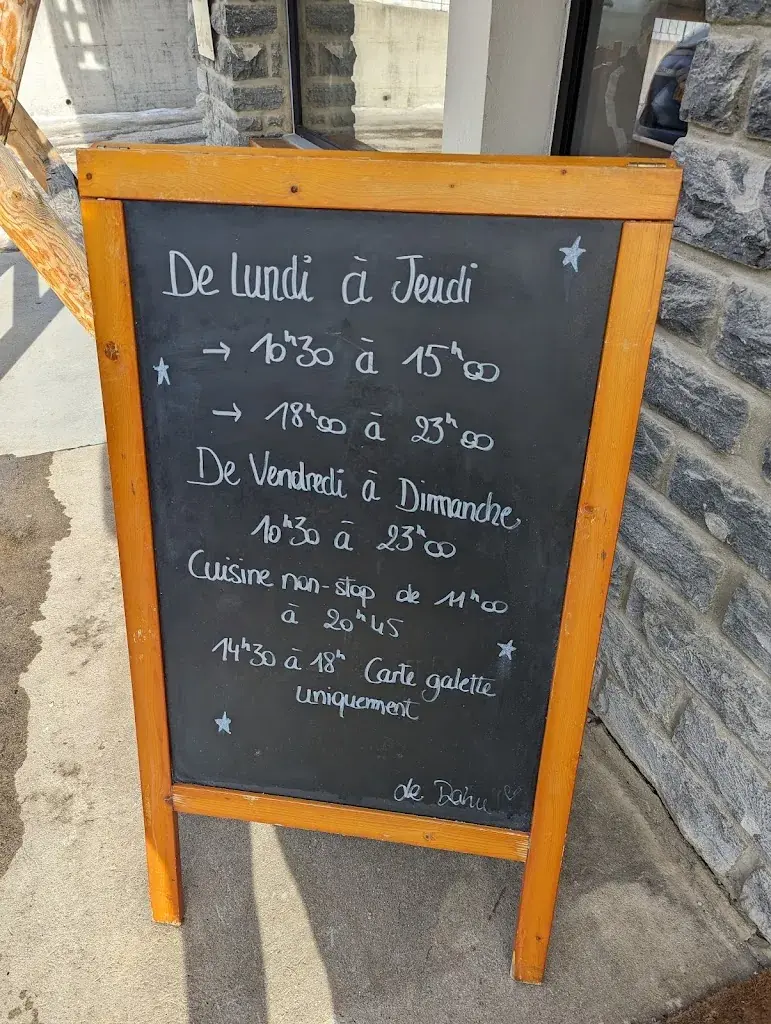 De Lundi à Jeudi
→ 10h30 à 15h00
→ 18h00 à 23h00
De Vendredi à Dimanche
10h30 à 23h00
Cuisine non-stop de 11h00
à 20h45
14h30 à 18h Carte galette
uniquement
de Dahu